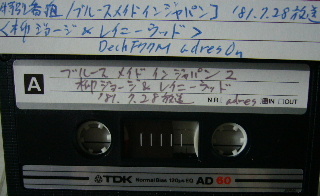 [ブルースメイドインジャパン] '81.7.28放送
<柳ジョージ&レイニーウッド>
Dech F77M adres On
A
ブルース メイド イン ジャパン 2
柳ジョージ & レイニーウッド
'81.7.28放送
N.R. adres. IN OUT
TDK Normal Bias 120μs EQ AD 60